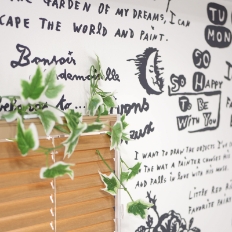 THE GARDEN OF MY DREAMS, I CAN
SCAPE THE WORLD AND PAINT.
Bonsoir
demoiselle
TU
MON
SO
SO HAPPY
TO BE
WITH YOU
to...
I WANT TO DRAW THE OBJECTS I'VE
THE WAY A PAINTER
AND FALLS IN LOVE WITH HIS MODEL.
LITTLE RED
FAVORITE PAINT